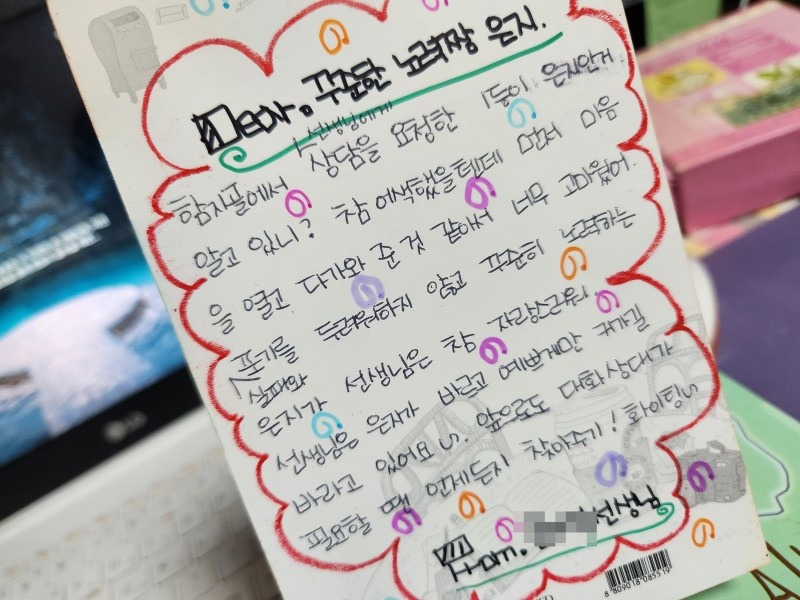 Dear. 꾸준한 노력짱 은지.
선생님에게
함지골에서 상담을 요청한 1등이 은지인거
알고 있니? 참 어색했을텐데 먼저 마음
을 열고 다가와 준 것 같아서 너무 고마웠어.
포기를 두려워하지 않고 꾸준히 노력하는
실패와
은지가 선생님은 참 자랑스러워!
선생님은 은지가 바르고 예쁘게만 커가길
바라고 있어요. 앞으로도 대화상대가
필요할 때 언제든지 찾아주기! 화이팅
From. 선생님
8 809018 085519
LG